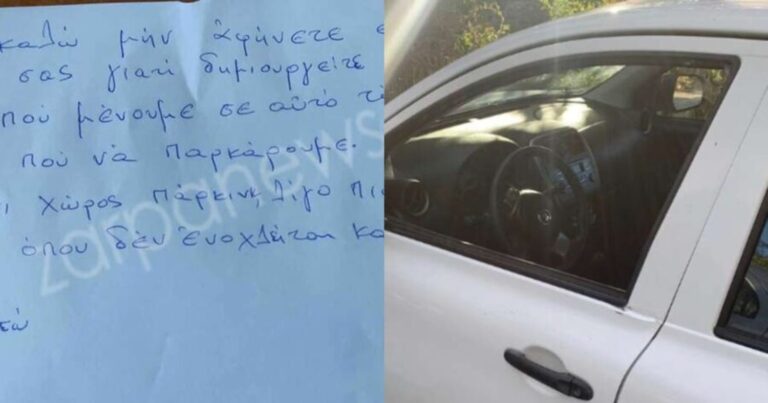 καλώ μήν ἀφήνετε
σας γιατί δημιουργείτε
πού μένουμε σε αὐτό τ
πού νά παρκάρουμε.
χώρος πάρκινκ λίγο πι
ὅπου δέν ἐνοχλεῖται κα
zarpanews